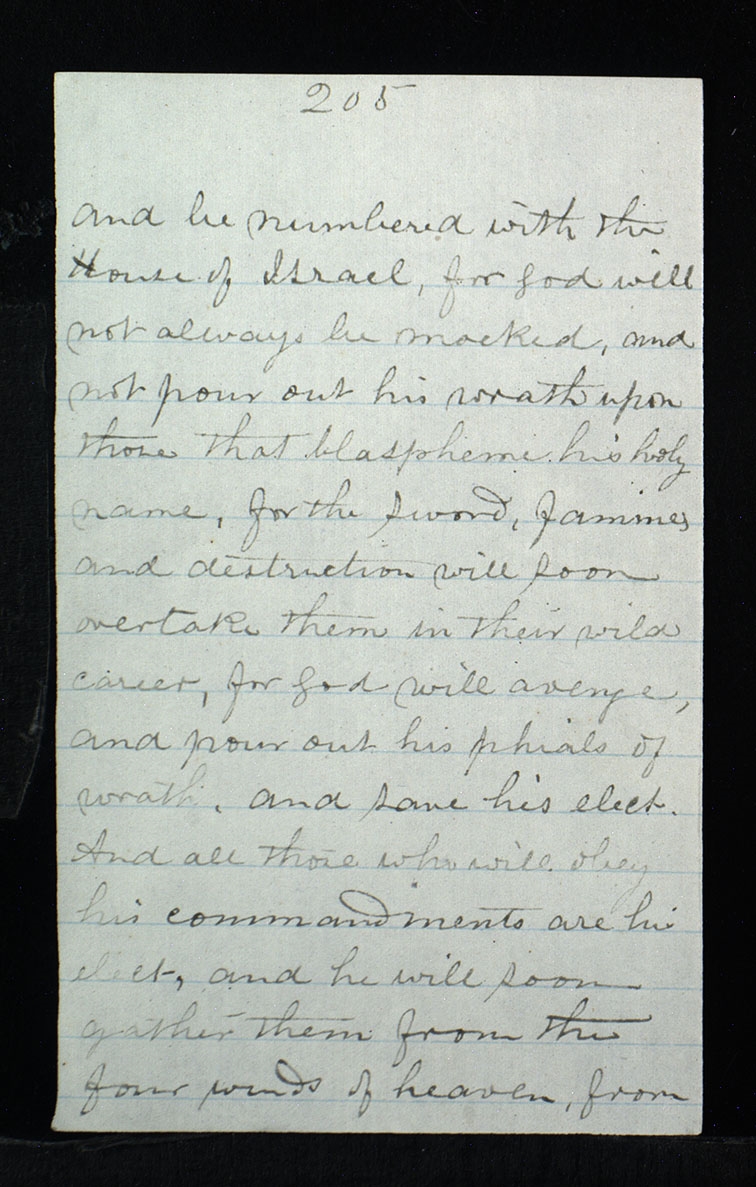 205
and be numbered with the
House of Israel, for God will
not always be mocked, and
not pour out his wrath upon
those that blaspheme his holy
name, for the sword, famines
and destruction will soon
overtake them in their wild
career, for God will avenge,
and pour out his phials of
wrath, and save his elect.
And all those who will obey
his commandments are his
elect, and he will soon
gather them from the
four winds of heaven, from